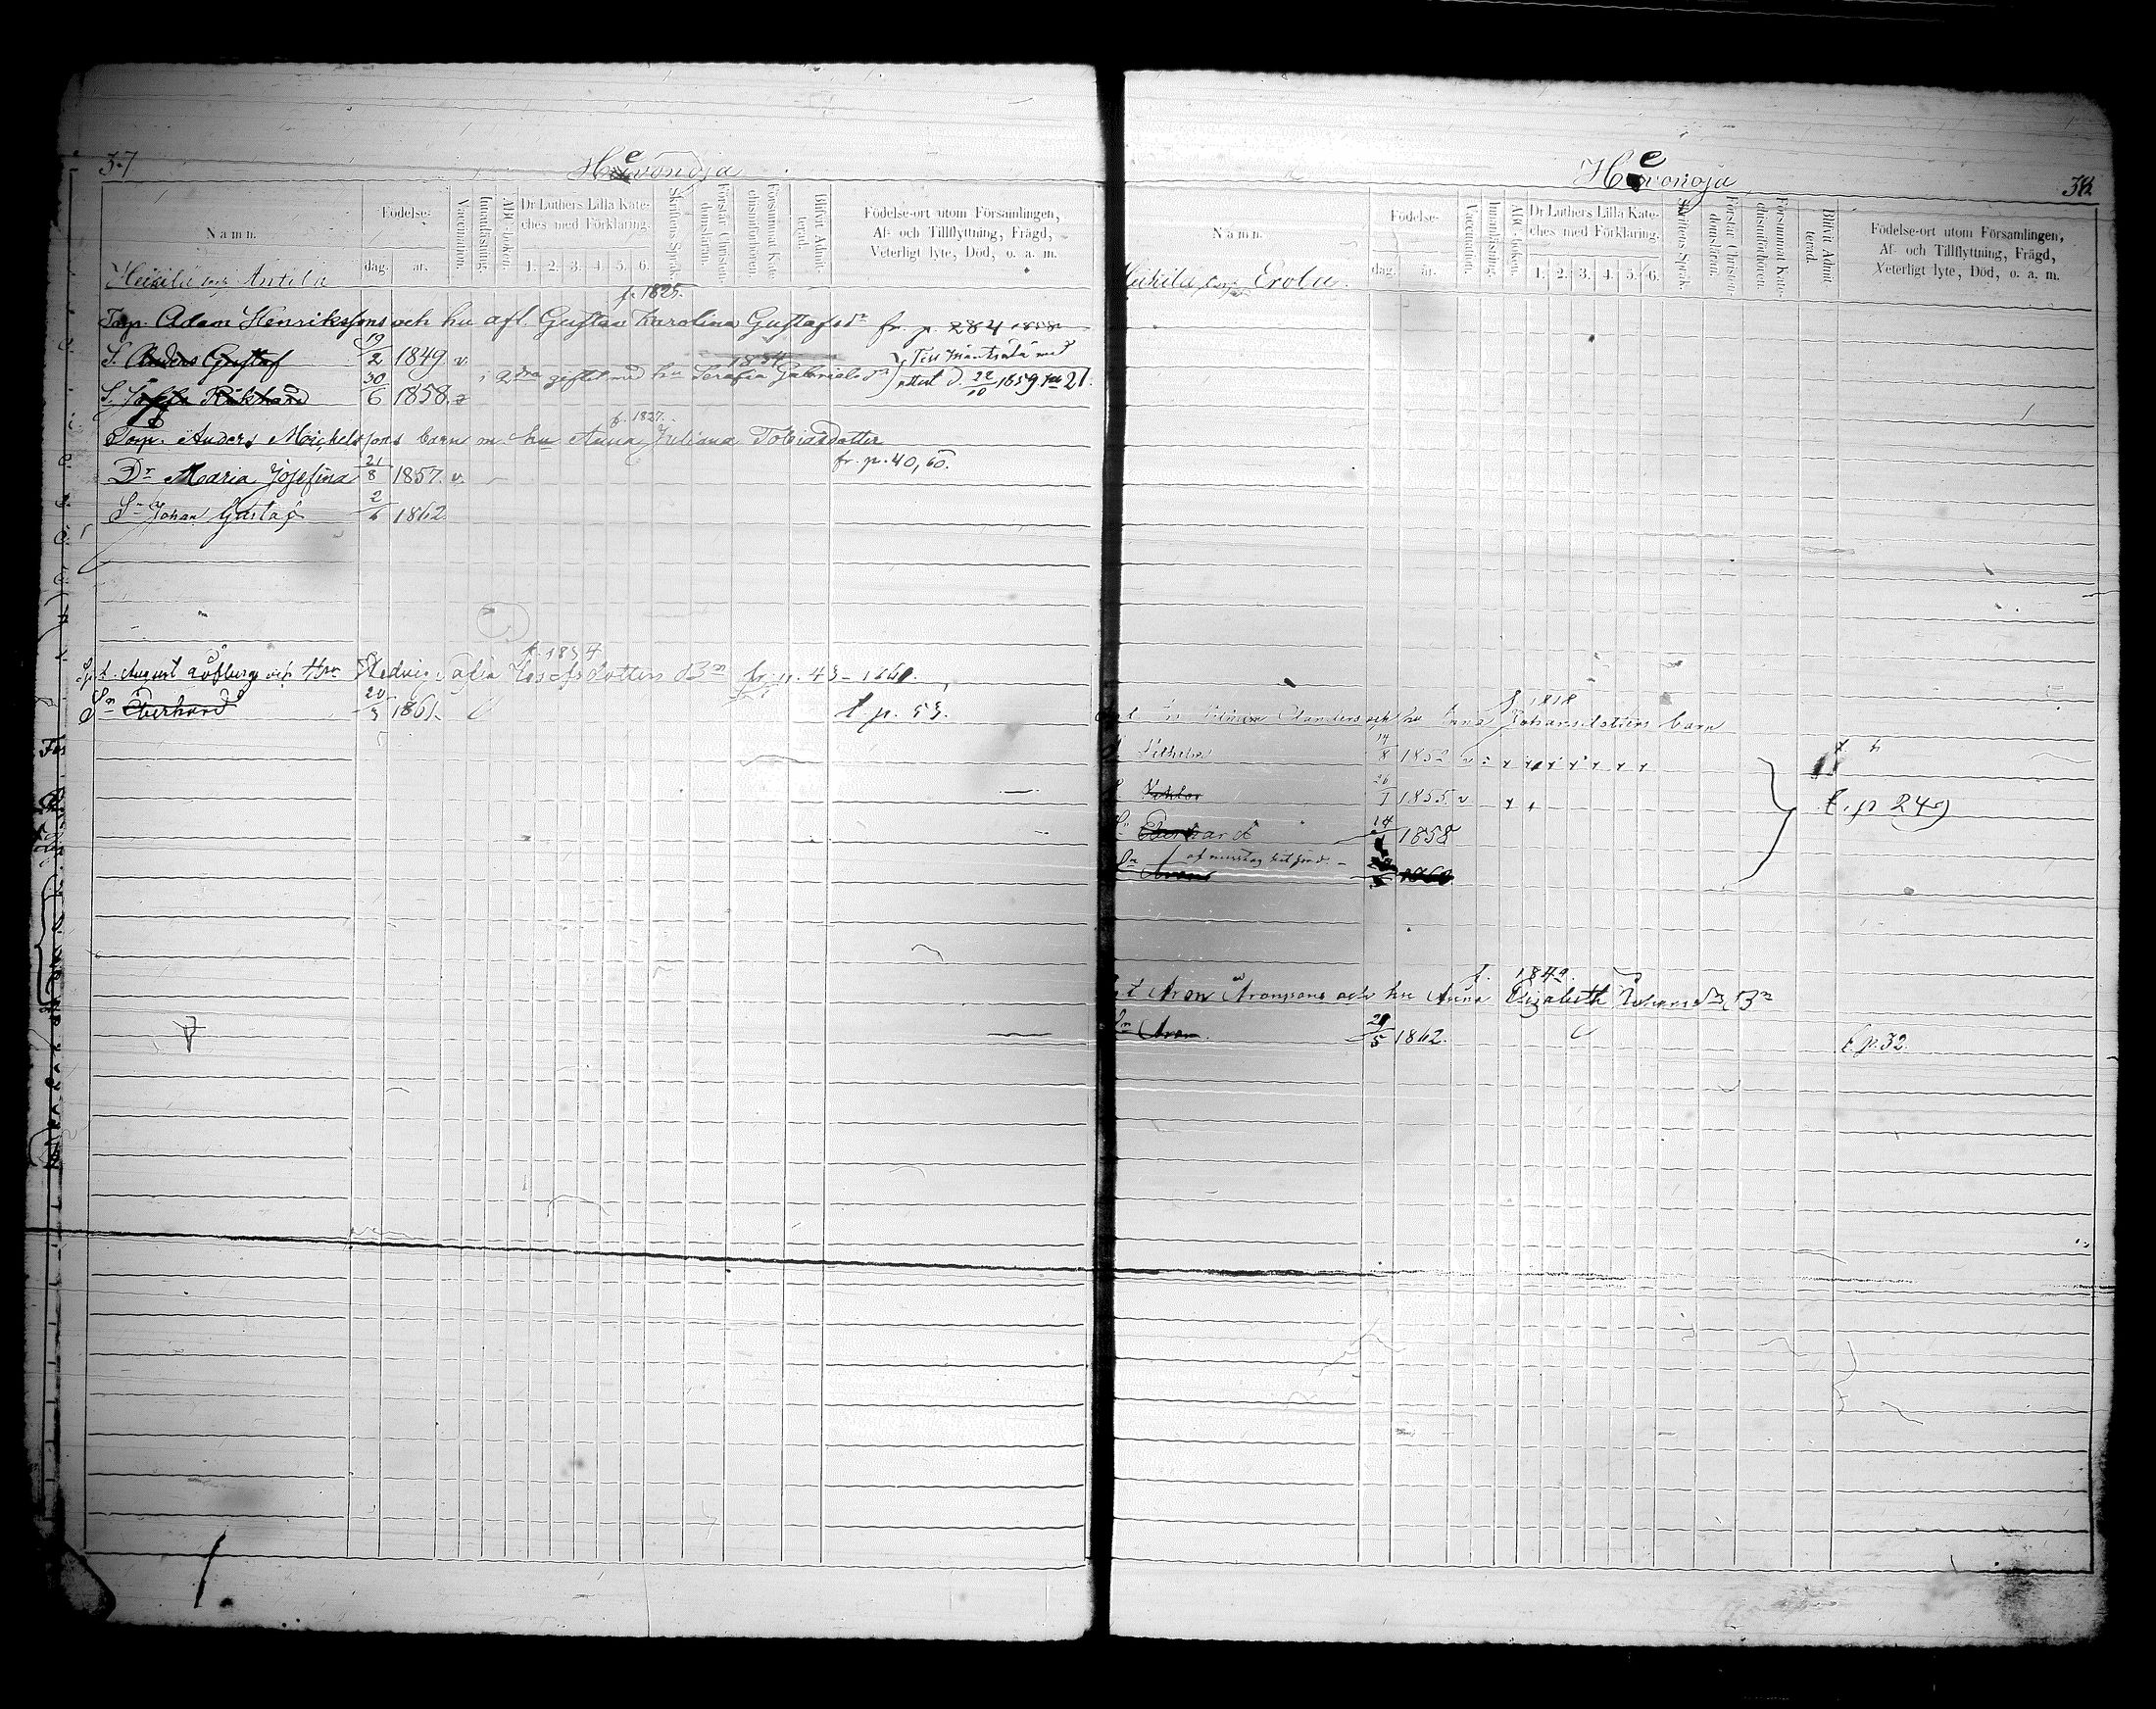 37
Hevonoja
Namn.
Födelse-
dag.
år.
Vaccination.
Innanläsning.
ABC-boken.
Dr Luthers Lilla Kate-
ches med Förklaring.
1. 2. 3. 4. 5. 6.
Skriftens Språk.
Förstår Christen-
domsläran.
Försummat Kate-
chismiförhören.
Blifvit Admit-
terad.
Födelse-ort utom Församlingen,
Af- och Tillflyttning, Frägd,
Veterligt lyte, Död, o. a. m.
Heikilä torp Antila
f. 1825.
Torp. Adam Henrikssons och hu afl. Gustava Karolina Gustafsdr fr. p. 284 1858
S. Anders Gustaf 19/2 1849. v.
1834
i 2dra giftet med hu Serafia Gabrielsdr
Till Mäntsälä med
attest d. 22/10 1859 No 21.
S. Rikhard 30/6 1858. v
f. 1827.
Torp. Anders Michelssons barn m. hu Anna Juliana Tobiasdotter
fr. p. 40, 60.
Dr Maria Josefina 21/8 1857. v.
Sn Johan Gustaf 2/6 1862.
f. 1834
August och Hu Hedvig Sofia Josefsdotters Bn fr. p. 43 - 1661.
Sn Eberhard 20/3 1861. t p. 53.
Hevonoja
38.
Namn.
Födelse-
dag.
år.
Vaccination.
Innanläsning.
ABC-boken.
Dr Luthers Lilla Kate-
ches med Förklaring.
1. 2. 3. 4. 5. 6.
Skriftens Språk.
Förstår Christen-
domsläran.
Försummat Kate-
chismiförhören.
Blifvit Admit-
terad.
Födelse-ort utom Församlingen,
Af- och Tillflyttning, Frägd,
Veterligt lyte, Död, o. a. m.
Heikilä torp Erola.
f 1818
och hu Anna Johansdotters barn
Vilhelm 14/8 1852 v
Viktor 26/1 1855. v t. p 249
Sn Eberhard 14 1858
af misstag hit förd.
Sn Aron
f. 1840.
Aron Aronssons och hu Anna Elizabeth Johansdrs Bn
Sn Aron. 21/5 1862. t. p. 32.